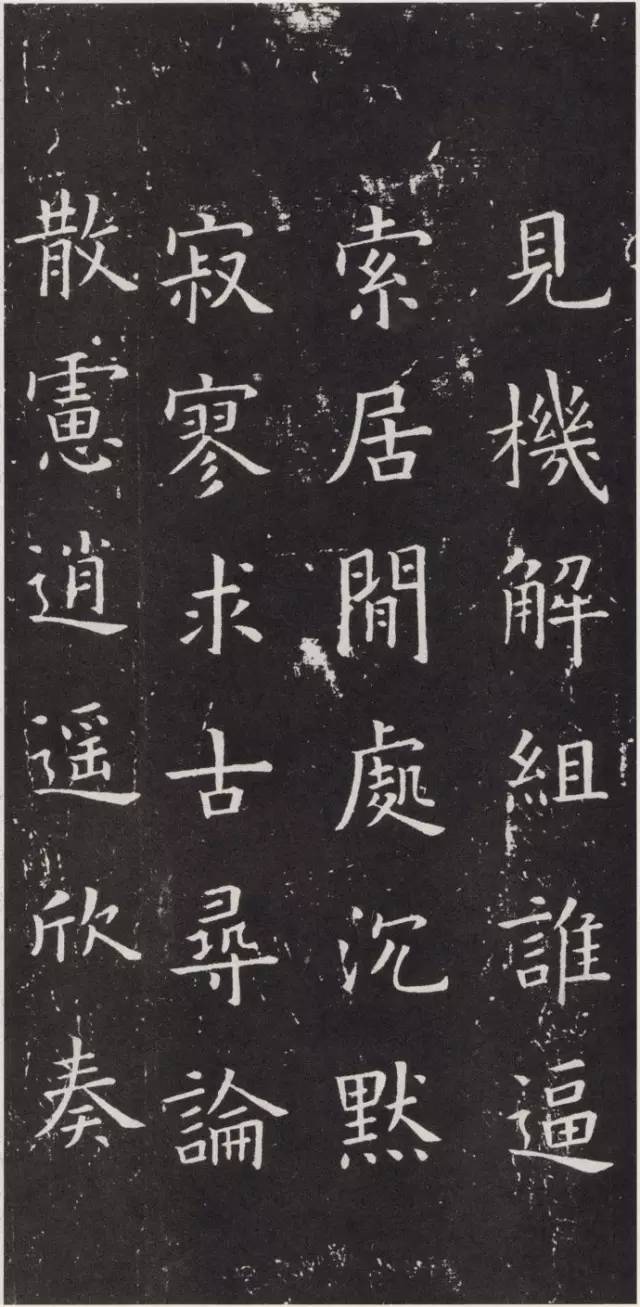 見機解組誰逼
索居閒處沉默
寂寥求古尋論
散慮逍遥欣奏